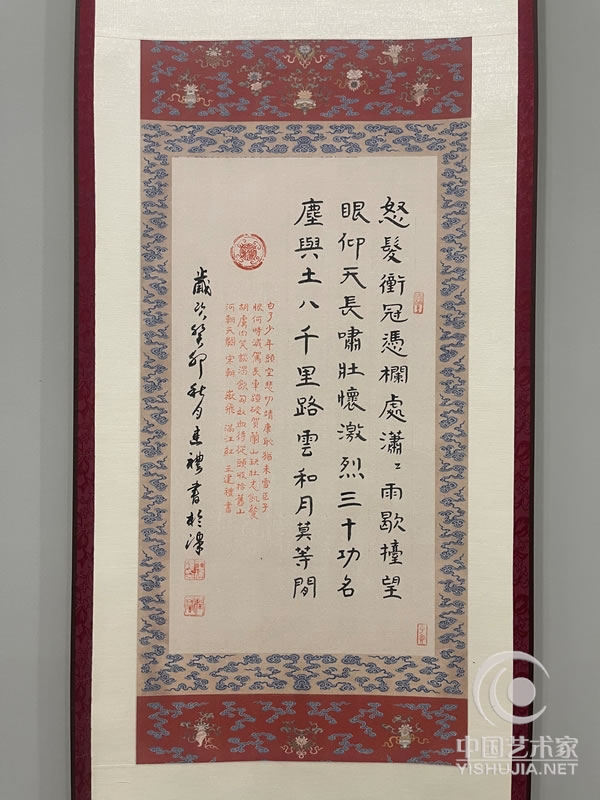 怒髮衝冠憑欄處瀟〻雨歇擡望
眼仰天長嘯壯懷激烈三十功名
塵與土八千里路雲和月莫等閒
白了少年頭空悲切靖康恥猶未雪臣子
恨何時滅駕長車踏破賀蘭山缺壯志飢餐
胡虜肉笑談渴飲匈奴血待從頭收拾舊山
河朝天闕 宋朝 嶽飛 滿江紅 王建禮書
歲次癸卯秋月建禮書於溧
中国艺术家
YISHUJIA.NET